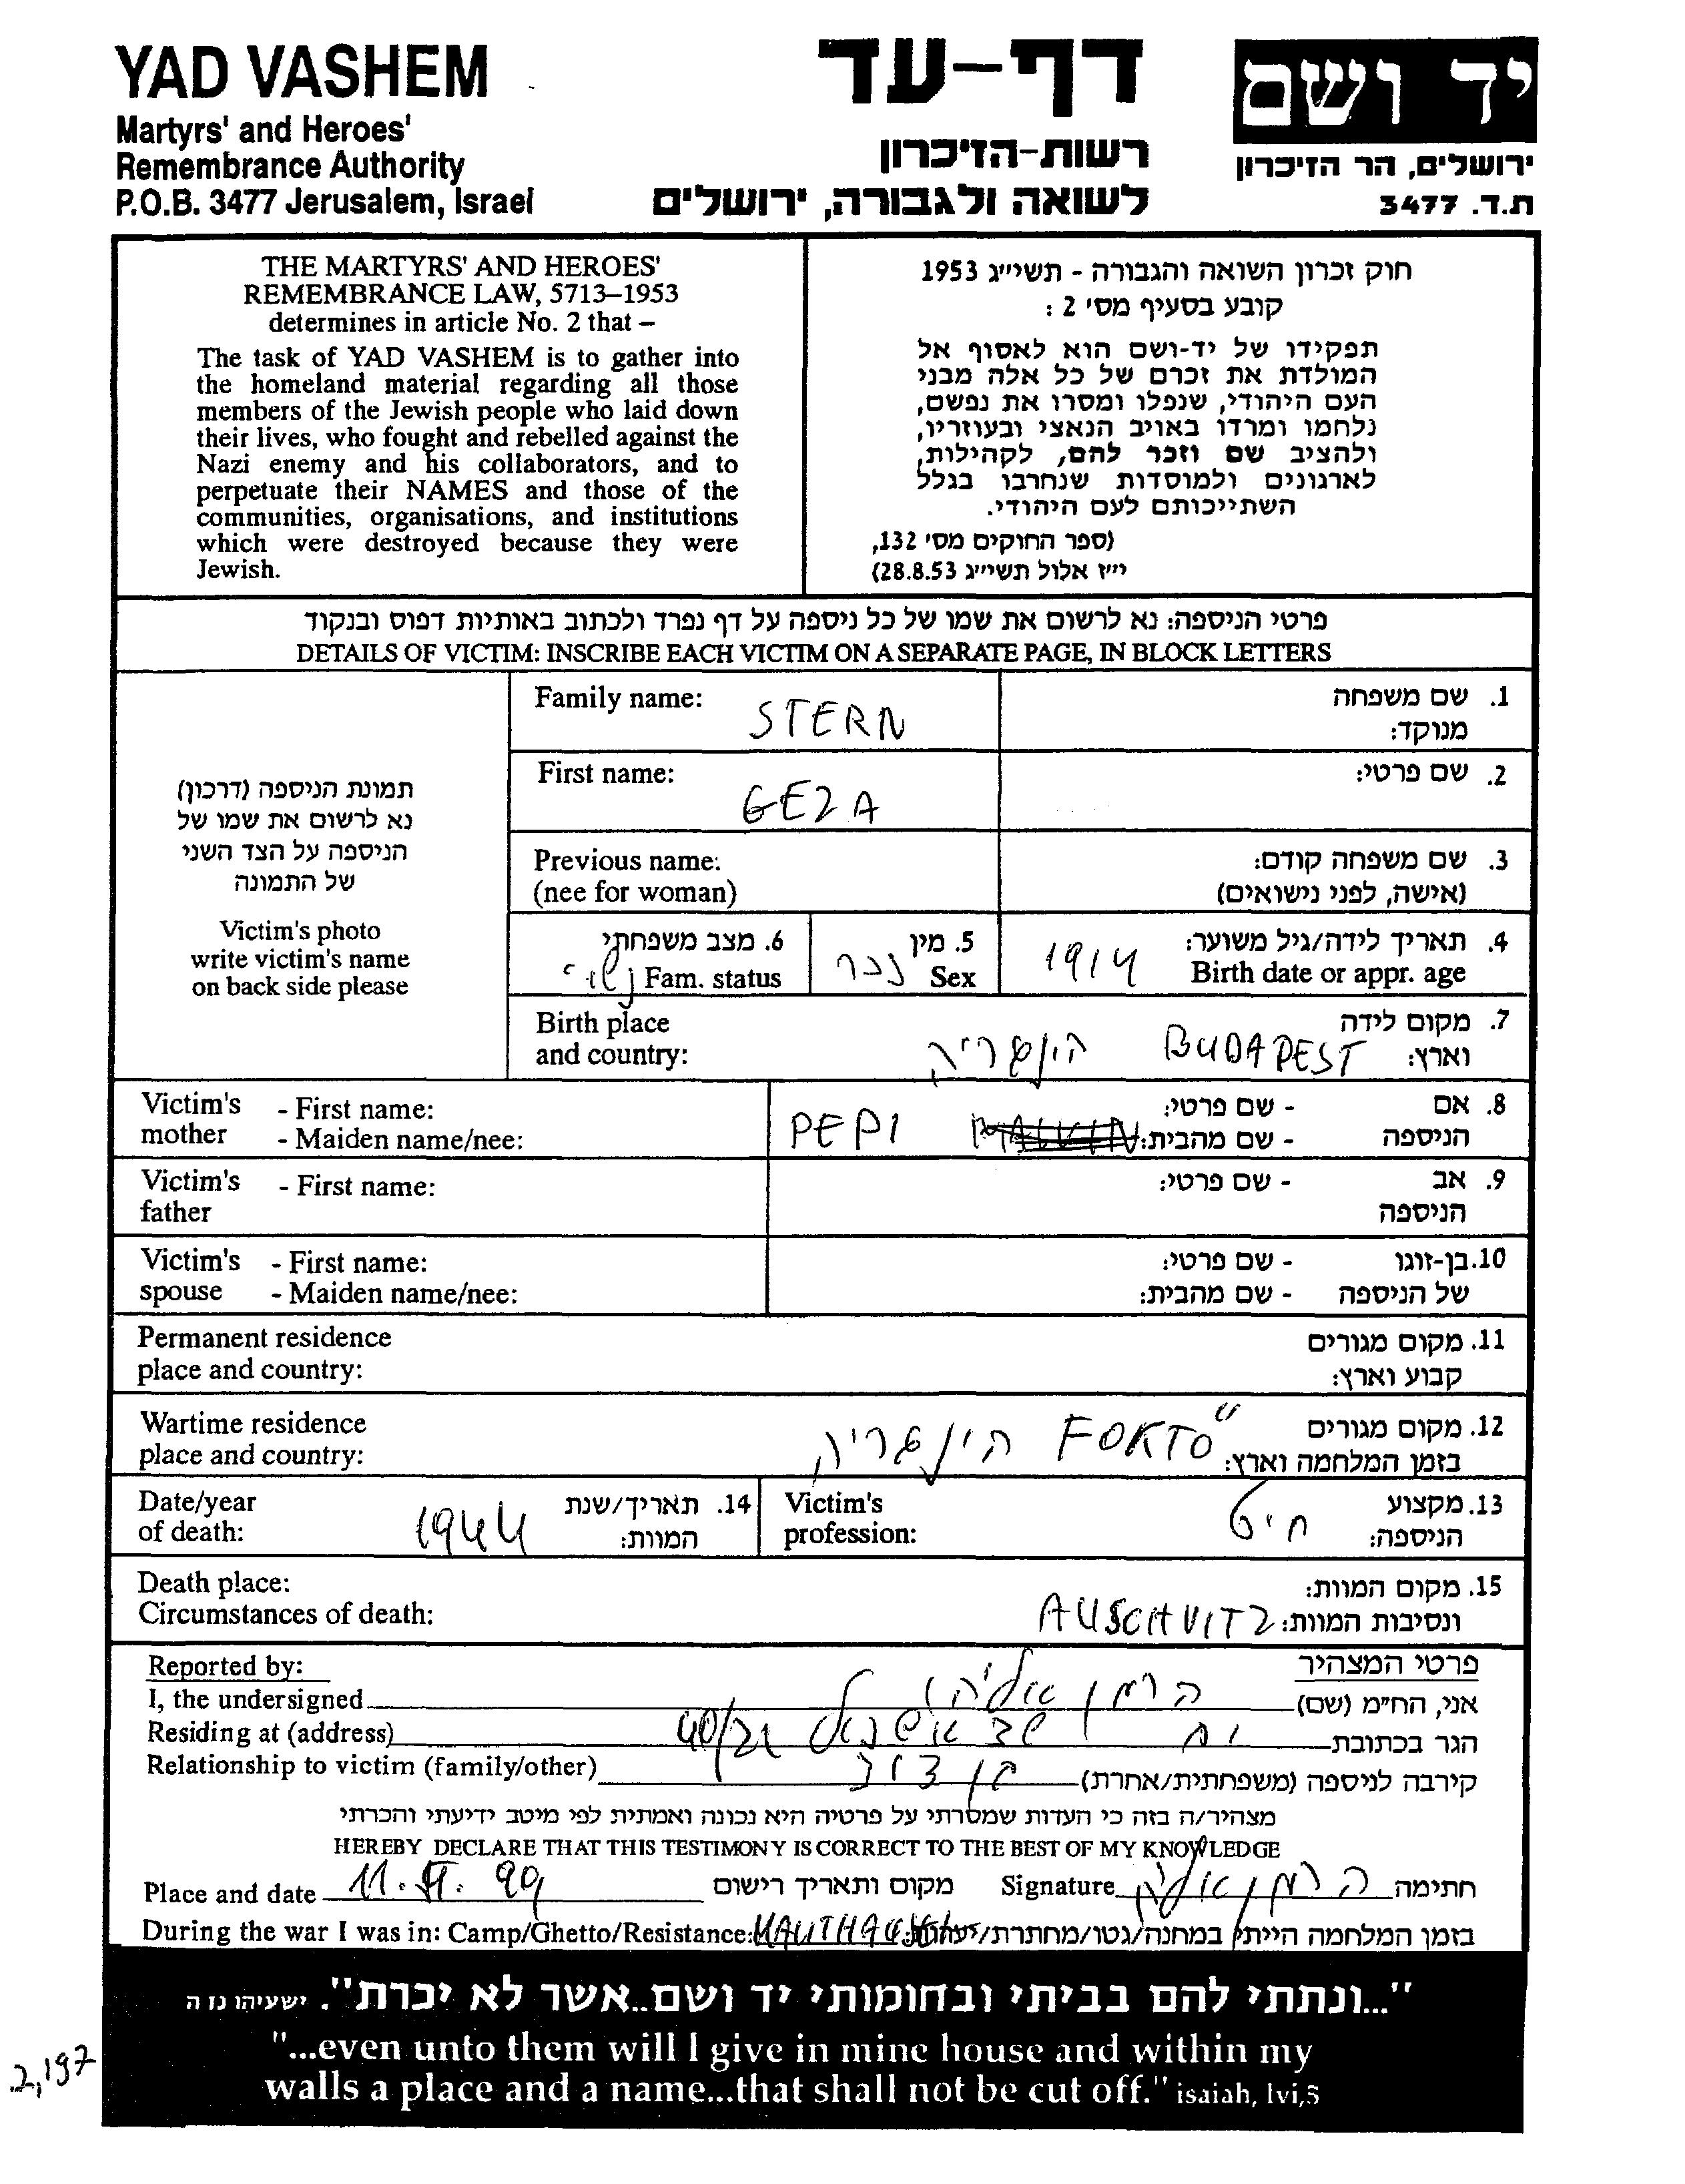 YAD VASHEM
Martyrs' and Heroes'
Remembrance Authority
P.O.B. 3477 Jerusalem, Israel
דף-עד
רשות-הזיכרון
לשואה ולגבורה, ירושלים
יד ושם
ירושלים, הר הזיכרון
ת.ד. 3477
THE MARTYRS' AND HEROES'
REMEMBRANCE LAW, 5713–1953
determines in article No. 2 that –
The task of YAD VASHEM is to gather into
the homeland material regarding all those
members of the Jewish people who laid down
their lives, who fought and rebelled against the
Nazi enemy and his collaborators, and to
perpetuate their NAMES and those of the
communities, organisations, and institutions
which were destroyed because they were
Jewish.
חוק זכרון השואה והגבורה - תשי״ג 1953
קובע בסעיף מס' 2 :
תפקידו של יד-ושם הוא לאסוף אל
המולדת את זכרם של כל אלה מבני
העם היהודי, שנפלו ומסרו את נפשם,
נלחמו ומרדו באויב הנאצי ובעוזריו,
ולהציב שם וזכר להם, לקהילות,
לארגונים ולמוסדות שנחרבו בגלל
השתייכותם לעם היהודי.
(ספר החוקים מס' 132,
י״ז אלול תשי״ג 28.8.53)
פרטי הניספה: נא לרשום את שמו של כל ניספה על דף נפרד ולכתוב באותיות דפוס ובנקוד
DETAILS OF VICTIM: INSCRIBE EACH VICTIM ON A SEPARATE PAGE, IN BLOCK LETTERS
תמונת הניספה (דרכון)
נא לרשום את שמו של
הניספה על הצד השני
של התמונה
Victim's photo
write victim's name
on back side please
Family name: STERN 1. שם משפחה
מנוקד:
First name: GEZA 2. שם פרטי:
Previous name: 3. שם משפחה קודם:
(nee for woman) (אישה, לפני נישואים)
6. מצב משפחתי 5. מין 4. תאריך לידה/גיל משוער:
נשוי Fam. status נכר Sex 1914 Birth date or appr. age
Birth place 7. מקום לידה
and country: הונגריה BUDAPEST וארץ:
Victim's - First name: - שם פרטי: 8. אם
mother - Maiden name/nee: PEPI MALVIN - שם מהבית: הניספה
Victim's - First name: - שם פרטי: 9. אב
father הניספה
Victim's - First name: - שם פרטי: 10. בן-זוגו
spouse - Maiden name/nee: - שם מהבית: של הניספה
Permanent residence 11. מקום מגורים
place and country: קבוע וארץ:
Wartime residence 12. מקום מגורים
place and country: הונגריה FOKTŐ בזמן המלחמה וארץ:
Date/year 14. תאריך/שנת Victim's 13. מקצוע
of death: 1944 המוות: profession: חייט הניספה:
Death place: 15. מקום המוות:
Circumstances of death: AUSCHVITZ ונסיבות המוות:
Reported by: פרטי המצהיר
I, the undersigned הרמן אליהו אני, הח״מ (שם)
Residing at (address) 40/21 הגר בכתובת
Relationship to victim (family/other) בן דוד קירבה לניספה (משפחתית/אחרת)
מצהיר/ה בזה כי העדות שמסרתי על פרטיה היא נכונה ואמתית לפי מיטב ידיעתי והכרתי
HEREBY DECLARE THAT THIS TESTIMONY IS CORRECT TO THE BEST OF MY KNOWLEDGE
Place and date 11. 99 מקום ותאריך רישום Signature הרמן אליהו חתימה
During the war I was in: Camp/Ghetto/Resistance: בזמן המלחמה הייתי במחנה/גטו/מחתרת/יערות:
"...ונתתי להם בביתי ובחומותי יד ושם..אשר לא יכרת". ישעיהו נו ה
"...even unto them will I give in mine house and within my
walls a place and a name...that shall not be cut off." isaiah, lvi,5
2,197